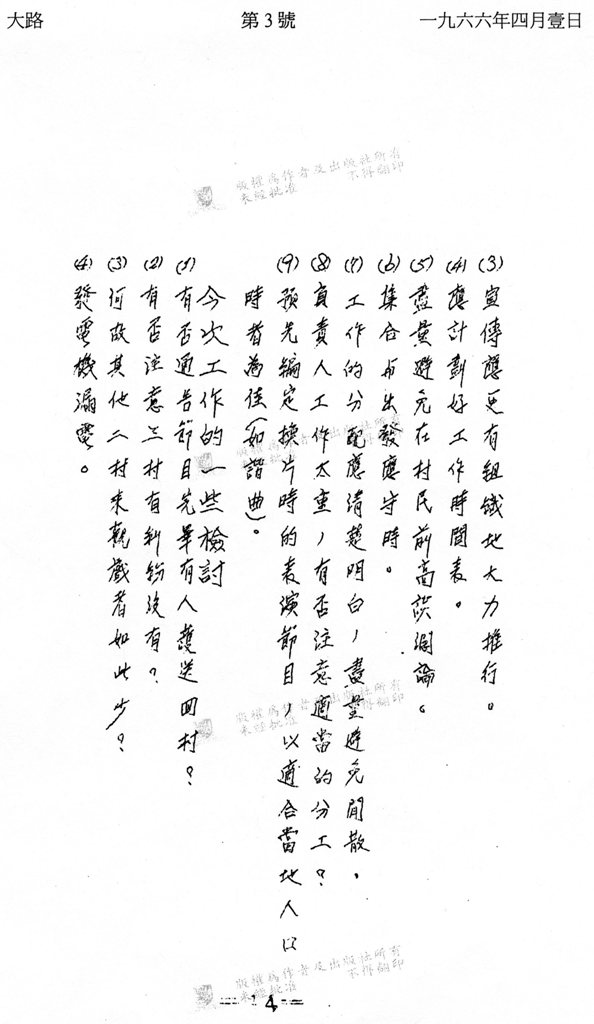 大路 第3號 一九六六年四月壹日
版權為作者及出版社所有
未經批准 不得翻印
(3)宣傳應更有組織地大力推行。
(4)應計劃好工作時間表。
(5)盡量避免在村民前高談濶論。
(6)集合与出發應守時。
(7)工作的分配應清楚明白，盡量避免閒散。
(8)負責人工作太重，有否注意適當的分工？
(9)預先編定換片時的表演節目，以適合當地人以
時者為佳(如諧曲)。
今次工作的一些檢討
(1)有否通告節目完畢有人護送回村？
(2)有否注意三村有糾紛沒有？
(3)何故其他二村來觀戲者如此少？
(4)發電機漏電。
版權為作者及出版社所有
未經批准 不得翻印
版權為作者及出版社所有
未經批准 不得翻印
版權為作者及出版社所有
未經批准 不得翻印
4